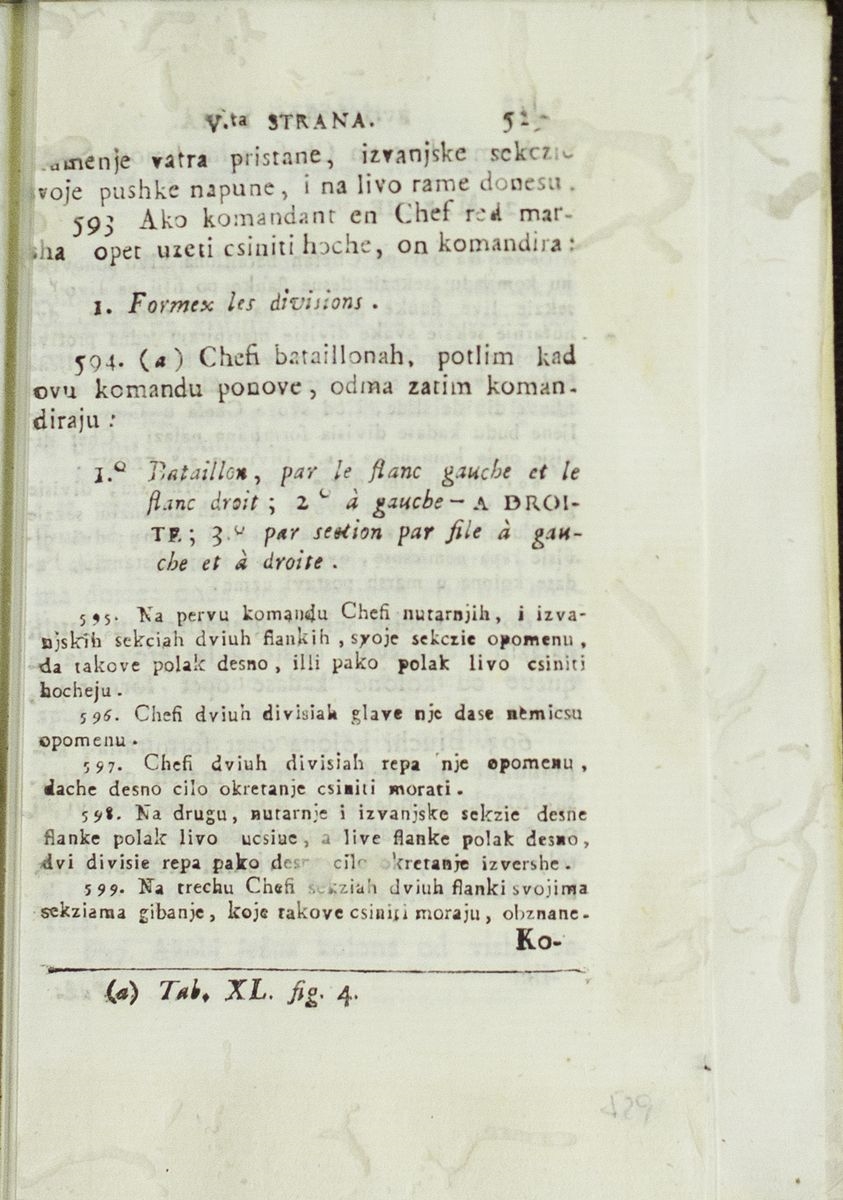 V.ta STRANA.
vatra pristane, izvanjske sekczie
pushke napune, i na livo rame donesu.
593 Ako komandant en Chef red mar-
sha opet uzeti csiniti hoche, on komandira:
1. Formex les divisions.
594. (a) Chefi bataillonah, potlim kad
ovu komandu ponove, odma zatim koman-
diraju:
1.º Bataillon, par le flanc gauche et le
flanc droit; 2º à gauche — A DROI-
TE; 3.º par section par file à gau-
che et à droite.
595. Na pervu komandu Chefi nutarnjih, i izva-
njskih sekciah dviuh flankih, svoje sekczie opomenu,
da takove polak desno, illi pako polak livo csiniti
hocheju.
596. Chefi dviuh divisiah glave nje dase nemicsu
opomenu.
597. Chefi dviuh divisiah repa nje opomenu,
dache desno cilo okretanje csiniti morati.
598. Na drugu, nutarnje i izvanjske sekzie desne
flanke polak livo ucsiue, a live flanke polak desno,
dvi divisie repa pako cilo okretanje izvershe.
599. Na trechu Chefi sekziah dviuh flanki svojima
sekziama gibanje, koje takove csiniti moraju, obznane.
Ko-
(a) Tab. XL. fig. 4.